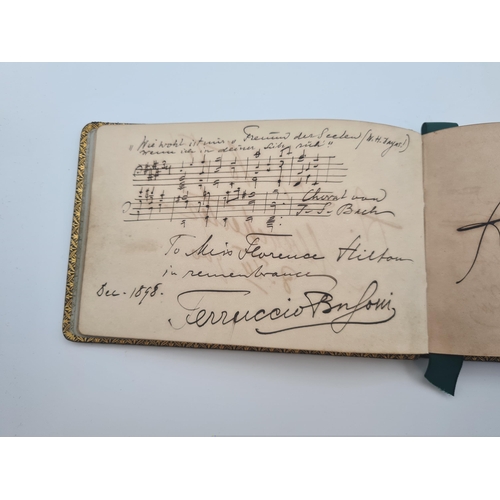 "Wie wohl ist mir, o Freund der Seelen (W.
wenn ich in deiner Liebe
Choral von
J. S. Bach
To Miss Florence Hilton
in remembrance
Dec. 1898.
Ferruccio Busoni